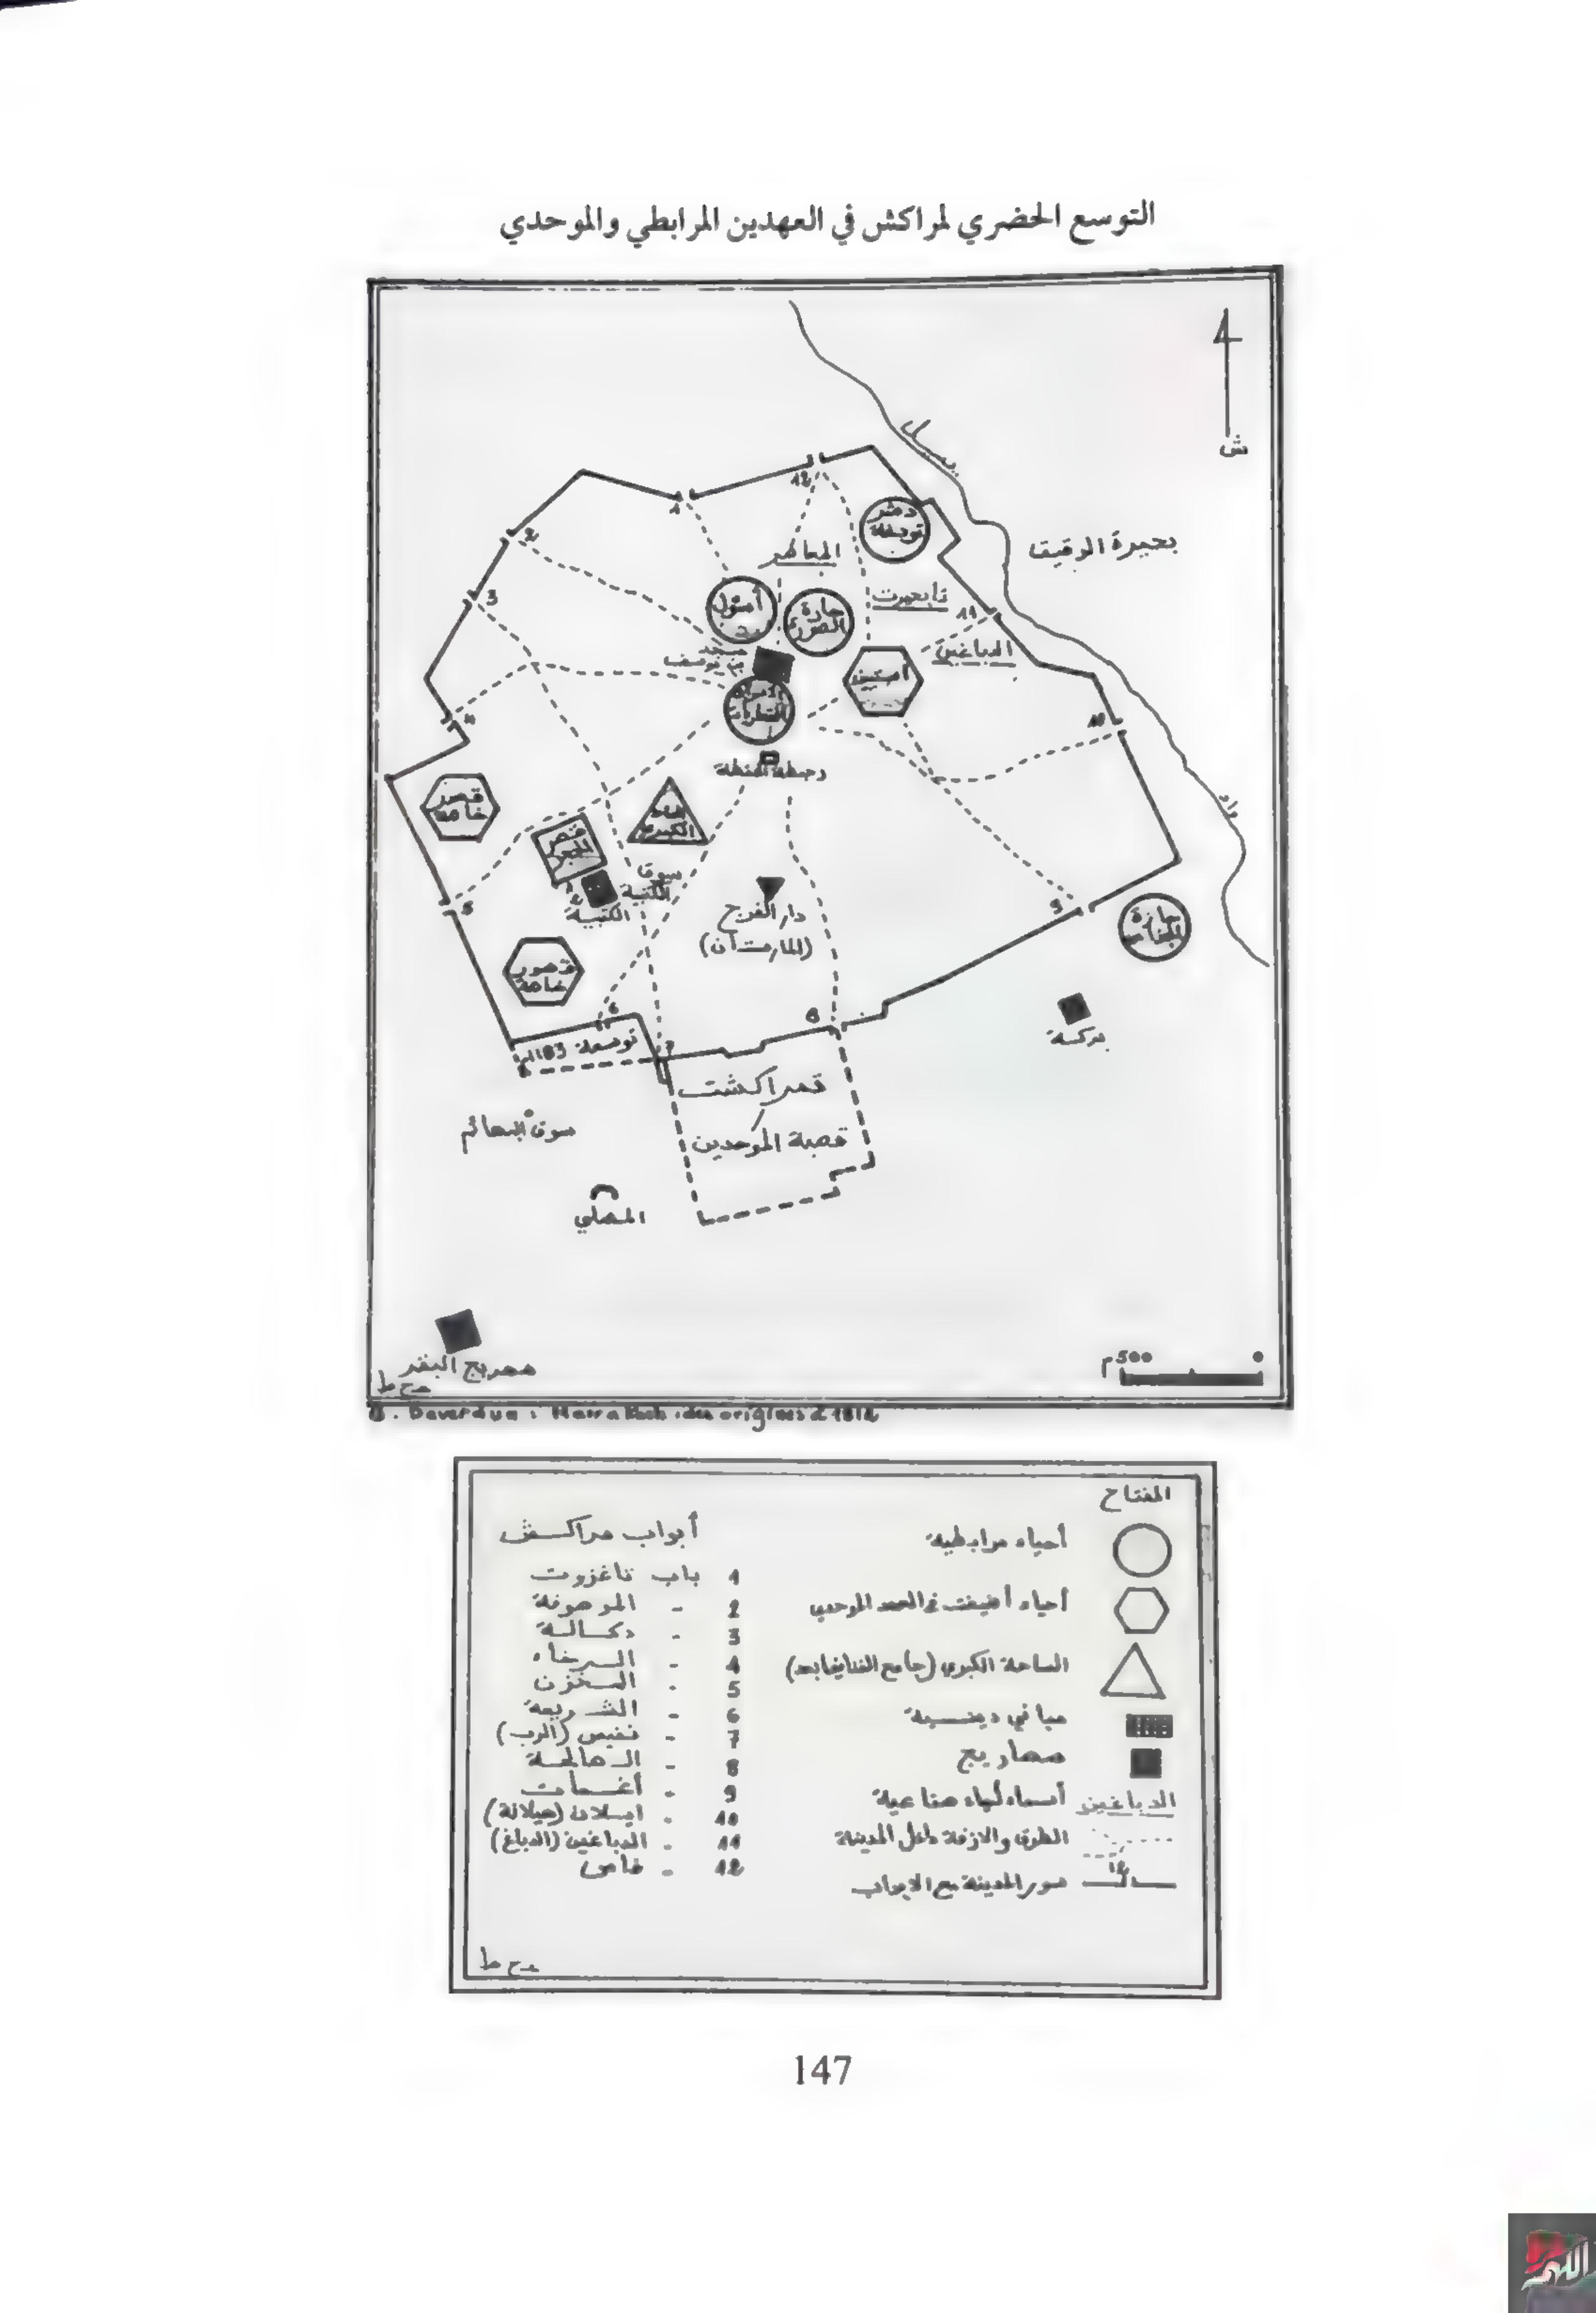 التوسع الحضري لمراكش في العهدين المرابطي والموحدي
ش
بحيرة الرقيق
12
1
2
3
4
5
6
7
8
9
10
11
أسول
حارة
الدباغين
مسجد
بن يوسف
رحبة الحنطة
قصر
الحجر
سوق
الكتبية
الكتبية
دار الفرج
(المارستان)
قصور
خاصة
توسعة 1183م
بركة
تمراكشت
قصبة الموحدين
سوق البهائم
المصلى
صهريج البقر
م500
0
G. Deverdun : Marrakech des origines à 1912
المفتاح
أحياء مرابطية
أحياء أضيفت في العهد الموحدي
الساحة الكبرى (جامع الفنا فيما بعد)
مباني دينية
صهاريج
الدباغين أسماء أحياء صناعية
الطرق والأزقة داخل المدينة
12
سور المدينة مع الأبواب
أبواب مراكش
1 باب تاغزوت
2 - الموصوفة
3 - دكالة
4 - الرخاء
5 - المخزن
6 - الشريعة
7 - نفيس (الرب)
8 - الصالحة
9 - أغمات
10 - ايسلان (هيلانة)
11 - الدباغين (الدباغ)
12 - فاس
147